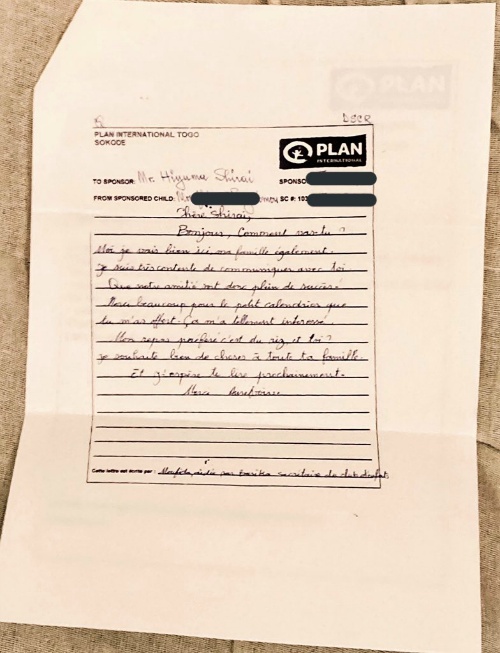 DSCR
PLAN INTERNATIONAL TOGO
SOKODE
PLAN
INTERNATIONAL
TO SPONSOR: Mr. Hiyuma Shirai
SPONSO
FROM SPONSORED CHILD:
SC #: 103
Shirai,
Bonjour, Comment vas-tu ?
Moi je vais bien ici, ma famille également.
Je suis très contente de communiquer avec toi
Que notre amitié soit donc plein de succès
Merci beaucoup pour le petit calendrier que
tu m'as offert. Ça m'a tellement interessé.
Mon repas préféré c'est du riz, et toi ?
je souhaite bien de choses à toute ta famille.
Et j'espère te lire prochainement.
Merci
Cette lettre est écrite par : par secrétaire de club d'enfants